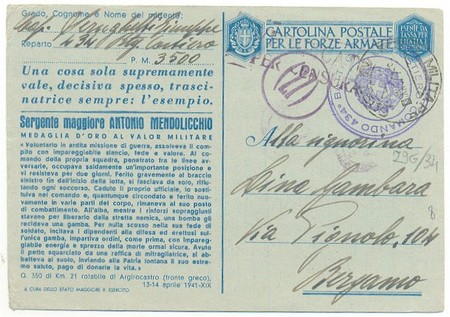 Grado, Cognome e Nome del mittente:
Giuseppe
Reparto 434
P. M. 3500
Una cosa sola supremamente
vale, decisiva spesso, trasci-
natrice sempre: l'esempio.
Sergente maggiore ANTONIO MENDOLICCHIO
MEDAGLIA D'ORO AL VALOR MILITARE
« Volontario in ardita missione di guerra, assolveva il compito
con impareggiabile slancio, fede e valore. Al comando
della propria squadra, penetrato tra le linee avversarie,
occupava saldamente un'importante posizione e
vi resisteva per due giorni. Ferito gravemente al braccio
sinistro fin dall'inizio della lotta, si fasciava da solo, rifiutando
ogni soccorso. Caduto il proprio ufficiale, lo sostituiva
nel comando e, quantunque circondato e ferito nuovamente
in varie parti del corpo, rimaneva al suo posto
di combattimento. All'alba, mentre i rinforzi sopraggiunti
stavano per liberarlo dalla stretta nemica, una bomba gli
recideva una gamba. Per nulla scosso nella sua fede di
soldato, incitava i dipendenti alla difesa ed erettosi sull'unica
gamba, impartiva ordini, come prima, con impareggiabile
energia e sprezzo della morte ormai sicura. Avuto
il petto squarciato da una raffica di mitragliatrice, si abbatteva
al suolo, inviando alla Patria lontana il suo estremo
saluto, pago di donarle la vita. »
Q. 350 di Km. 21 rotabile di Argirocastro (fronte greco),
13-14 aprile 1941-XIX
A CURA DELLO STATO MAGGIORE R. ESERCITO
CARTOLINA POSTALE
PER LE FORZE ARMATE
ESENTE DA
TASSA PER
PER CENSURA
COMANDO 434
MILITARE
Alla signorina
Dina Gambara
Via Pignolo, 104
Bergamo